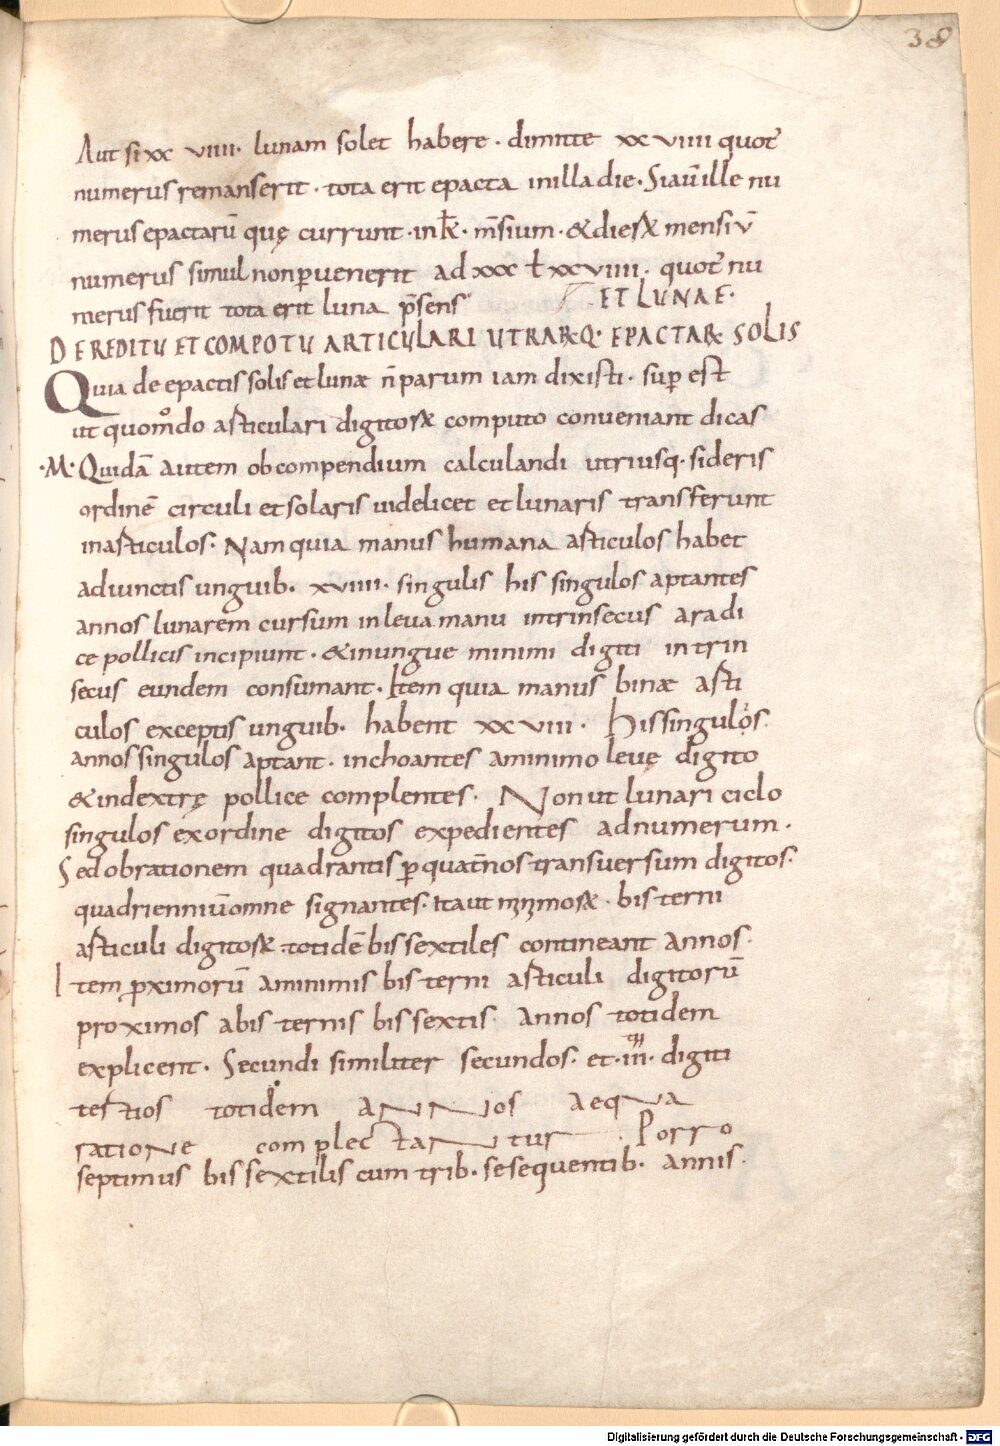 38
Aut si xx viiii. lunam solet habere. dimitte xx viiii quot̄
numerus remanserit. tota erit epacta in illa die. Si aū ille nu
merus epactarū quę currunt. in k̄. m̄sium. & dies & mensiū
numerus simul non pervenerit ad xxx ł xxviiii. quot̄ nu
merus fuerit tota erit luna p̄sens
ET LUNAE.
DE REDITU ET COMPOTU ARTICULARI UTRARꝜQ. EPACTARꝜ SOLIS
Quia de epactis solis et lunæ n̄ parum iam dixisti. sup̄ est
ut quomͦdo articulari digitoꝝ computo conveniant dicas
.M. Quidā autem ob compendium calculandi utriusq. sideris
ordinē circuli et solaris videlicet et lunaris transferunt
in articulos. Nam quia manus humana articulos habet
adiunctis unguib. xviiii. singulis his singulos aptantes
annos lunarem cursum in leva manu intrinsecus a radi
ce pollicis incipiunt. & in ungue minimi digiti in trin
secus eundem consumant. Item quia manus binæ arti
culos exceptis unguib. habent xxviii. His singulos
annos singulos aptant. inchoantes a minimo levę digito
& in dextrę pollice complentes. Non ut lunari ciclo
singulos ex ordine digitos expedientes ad numerum.
Sed ob rationem quadrantis p̱ quat̄nos transversum digitos.
quadrienniū omne signantes. Ita ut mīmoꝝ. bis terni
articuli digitoꝝ totidē bissextiles contineant annos.
Item p̱ximorū a minimis bis terni articuli digitorū
proximos a bis ternis bissextis annos totidem
explicent. Secundi similiter secundos. et. iii. digiti
tertios totidem annos aequa
ratione complectantur. Porro
septimus bissextilis cum trib. se sequentib. annis.
Digitalisierung gefördert durch die Deutsche Forschungsgemeinschaft - DFG